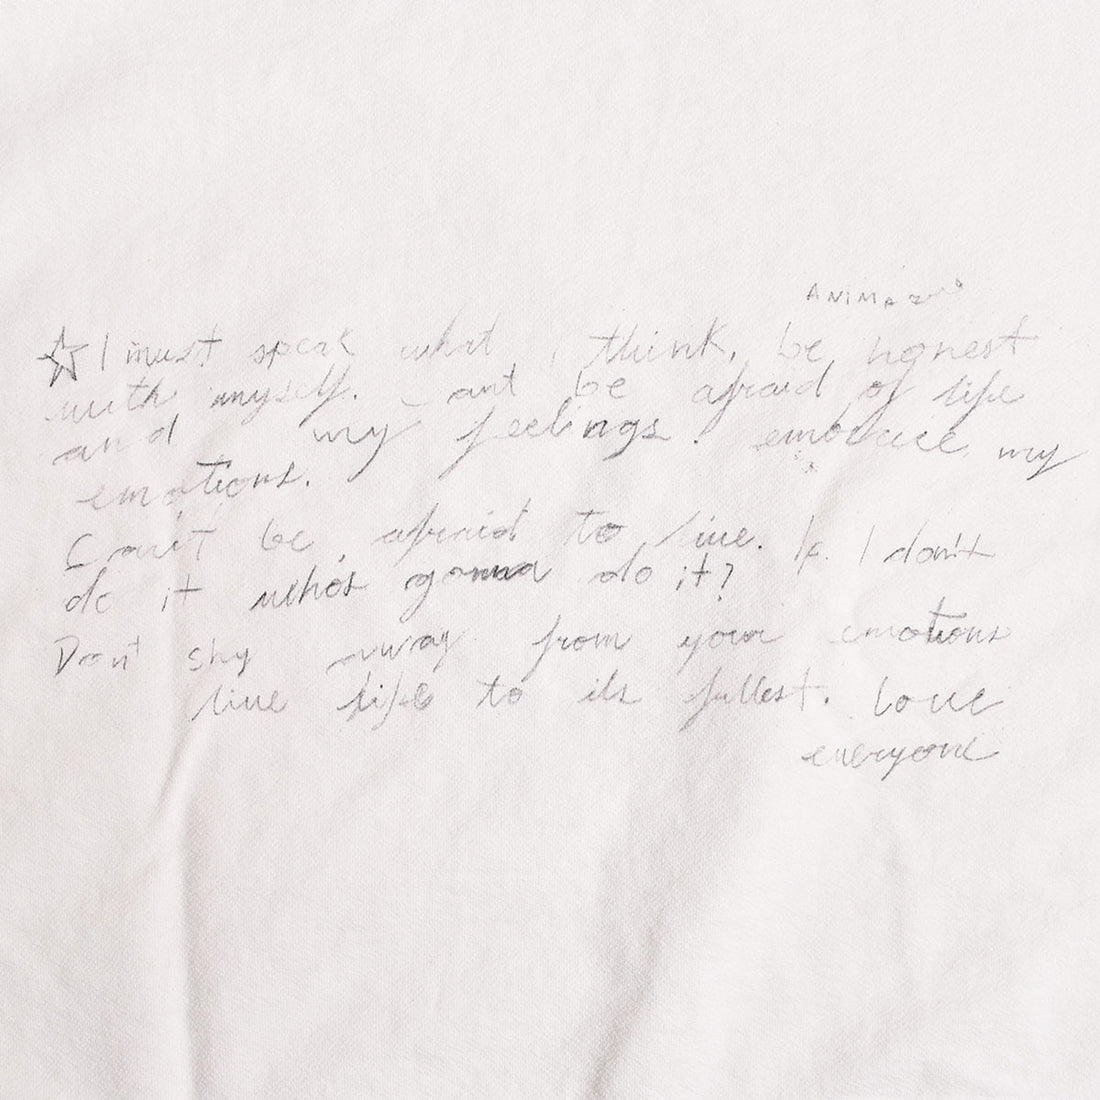 ☆ I must speak what I think, be honest
with myself. ant be afraid of life
and my feelings. embrace my
emotions.
Can't be afraid to live. If I don't
do it who's gonna do it?
Don't shy away from your emotions
live life to its fullest. Love
everyone